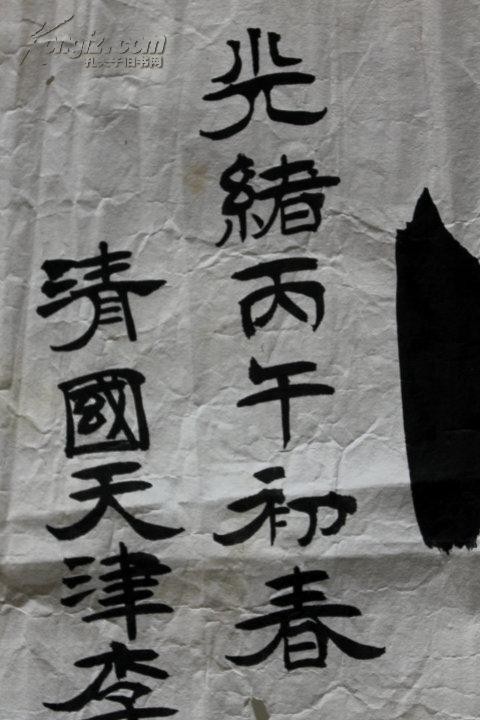 光緒丙午初春
清國天津李
Kongfz.com
孔夫子旧书网